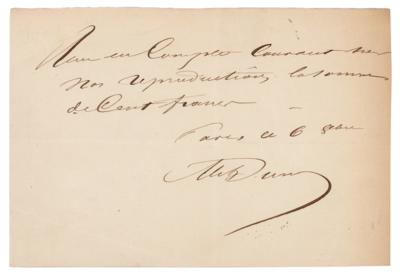 Reçu en Compte Courant sur
nos reproductions, la somme
de Cent francs
Paris ce 6